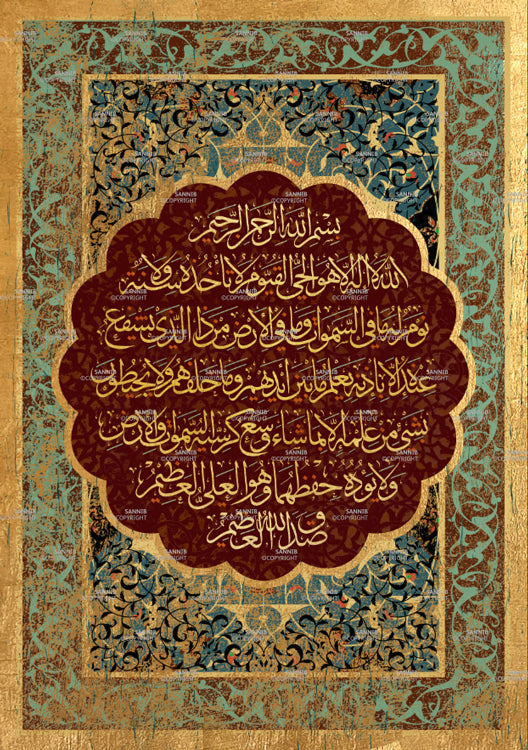 بسم الله الرحمن الرحيم
الله لا إله إلا هو الحي القيوم لا تأخذه سنة ولا
نوم له ما في السموات وما في الأرض من ذا الذي يشفع
عنده إلا بإذنه يعلم ما بين أيديهم وما خلفهم ولا يحيطون
بشيء من علمه إلا بما شاء وسع كرسيه السموات والأرض
ولا يؤده حفظهما وهو العلي العظيم
صدق الله العظيم
SANNIB
©COPYRIGHT